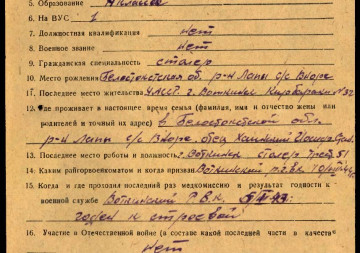 5. Образование 4 класса
6. На ВУС 1
7. Должностная квалификация нет
8. Военное звание Нет
9. Гражданская специальность столяр
10. Место рождения Белостокская об. р-н Лапы с/с
11. Последнее место жительства УАССР г. Воткинск
12. Где проживает в настоящее время семья (фамилия, имя и отчество жены или
родителей и точный их адрес) в Белостокской обл.
р-н Лапы с/с отец
13. Последнее место работы и должность г. Воткинск столяр трест 51
14. Каким райгорвоенкоматом и когда призван Воткинский
15. Когда и где проходил последний раз медкомиссию и результат годности к
военной службе Воткинский Р.В.К.
годен к строевой
16. Участие в Отечественной войне (в составе какой последней части в качестве
Нет